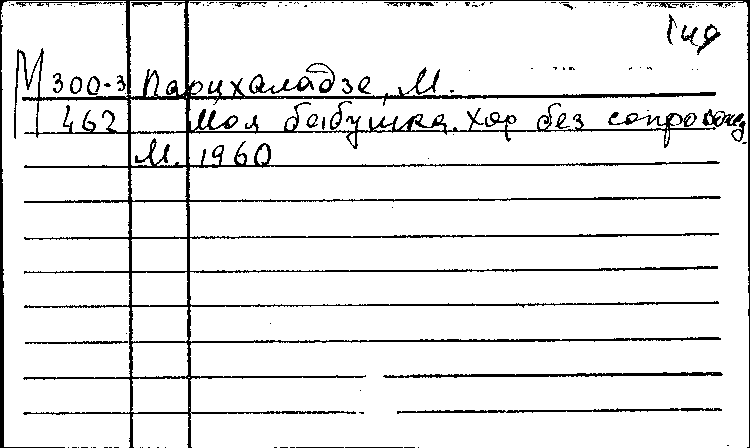 М 300-3 Парцхаладзе, М.
462 Моя бабушка. Хор без сопровожд.
М. 1960